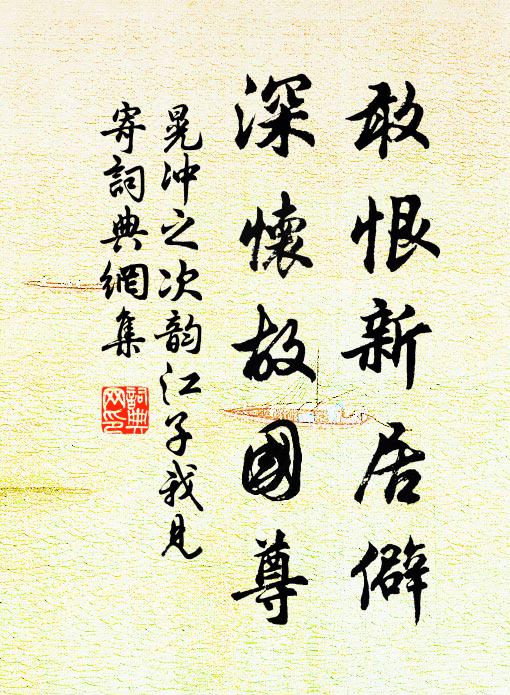 敢恨新居僻
深懷故國尊
晃沖之次韵江子我見
寄詞典網集
詞典網印